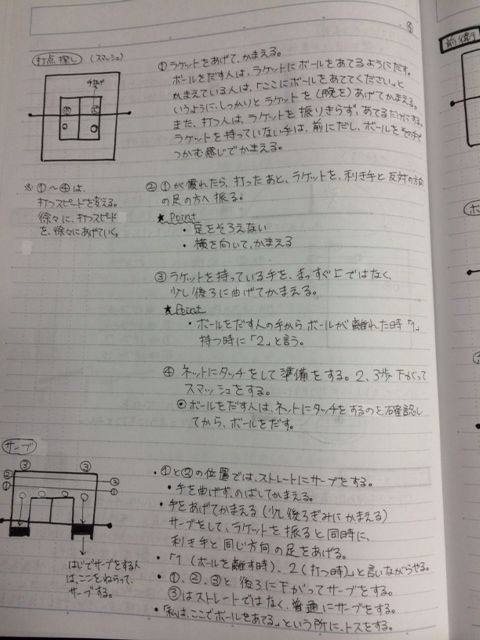 打点探し (スマッシュ)
手投げ
① ラケットをあげて、かまえる。
ボールをだす人は、ラケットにボールをあてるようにだす。
かまえている人は、「ここにボールをあててください。」と
いうように、しっかりとラケットを(腕を)あげてかまえる。
また、打つ人は、ラケットを振りきらず、あてるだけにする。
ラケットを持っていない手は、前にだし、ボールを
つかむ感じでかまえる。
※ ①〜④は、
打つスピードを変える。
徐々に、打つスピード
を、徐々にあげていく。
② ①が慣れたら、打ったあと、ラケットを、利き手と反対の方向
の足の方へ振る。
★ Point
・足をそろえない
・横を向いて、かまえる
③ ラケットを持っている手を、まっすぐ上ではなく、
少し後ろに曲げてかまえる。
★ Point
・ボールをだす人の手からボールが離れた時「1」
持つ時に「2」と言う。
④ ネットにタッチをして準備をする。2、3歩下がって
スマッシュをする。
◎ボールをだす人は、ネットにタッチをするのを確認し
てから、ボールをだす。
サーブ
③ ③
②
①
③
②
①
はじでサーブをする人
は、ここをねらって、
サーブする。
・①と②の位置では、ストレートにサーブをする。
・手を曲げず、のばしてかまえる。
・手をあげてかまえる(少し後ろぎみにかまえる)
サーブをして、ラケットを振ると同時に、
利き手と同じ方向の足をあげる。
・「1(ボールを離す時)、2(打つ時)」と言いながらやる。
・①、②、③と後ろに下がってサーブをする。
③はストレートではなく、普通にサーブをする。
・「私は、ここでボールをあてる。」という所に、トスをする。
前衛